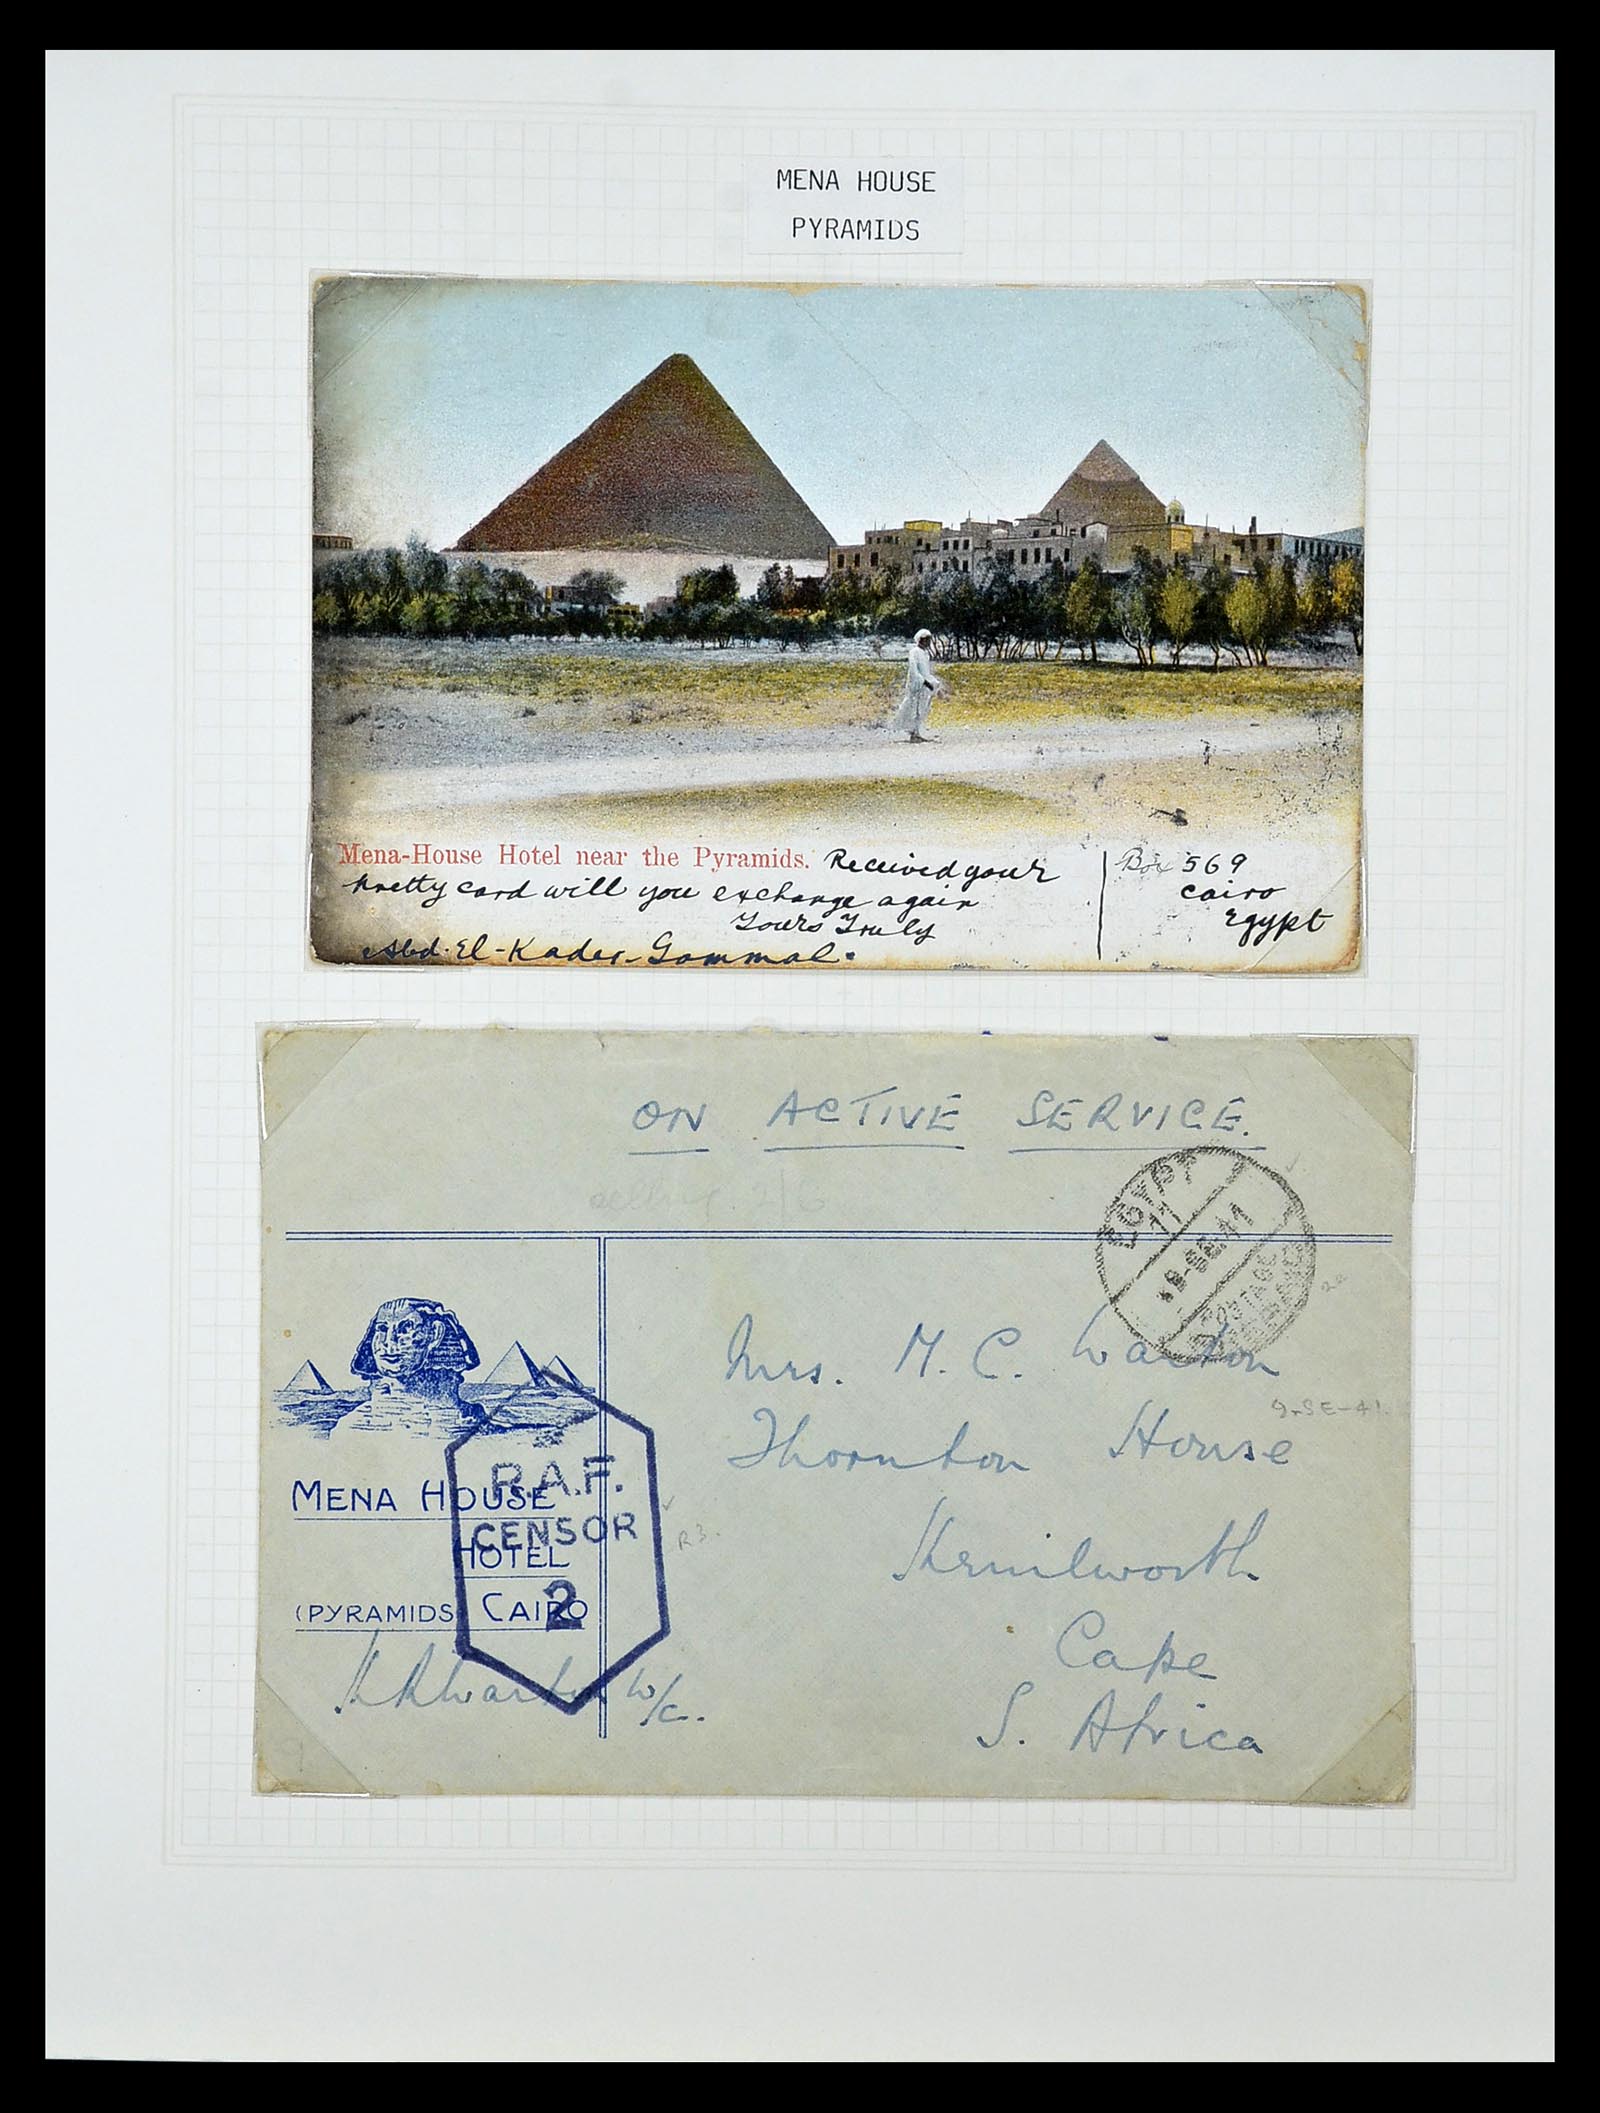 MENA HOUSE
PYRAMIDS
Mena-House Hotel near the Pyramids. Received your
pretty card will you exchange again
Yours Truly
Abd-El-Kader-Gammal.
Box 569
Cairo
Egypt
ON ACTIVE SERVICE.
2/6
EGYPT
POSTAGE
Mrs. M. C. Warton
9-SE-41
Thornton House
Kenilworth
Cape
S. Africa
MENA HOUSE
HOTEL
(PYRAMIDS) CAIRO
R.A.F.
CENSOR
2
R3.
W/C.